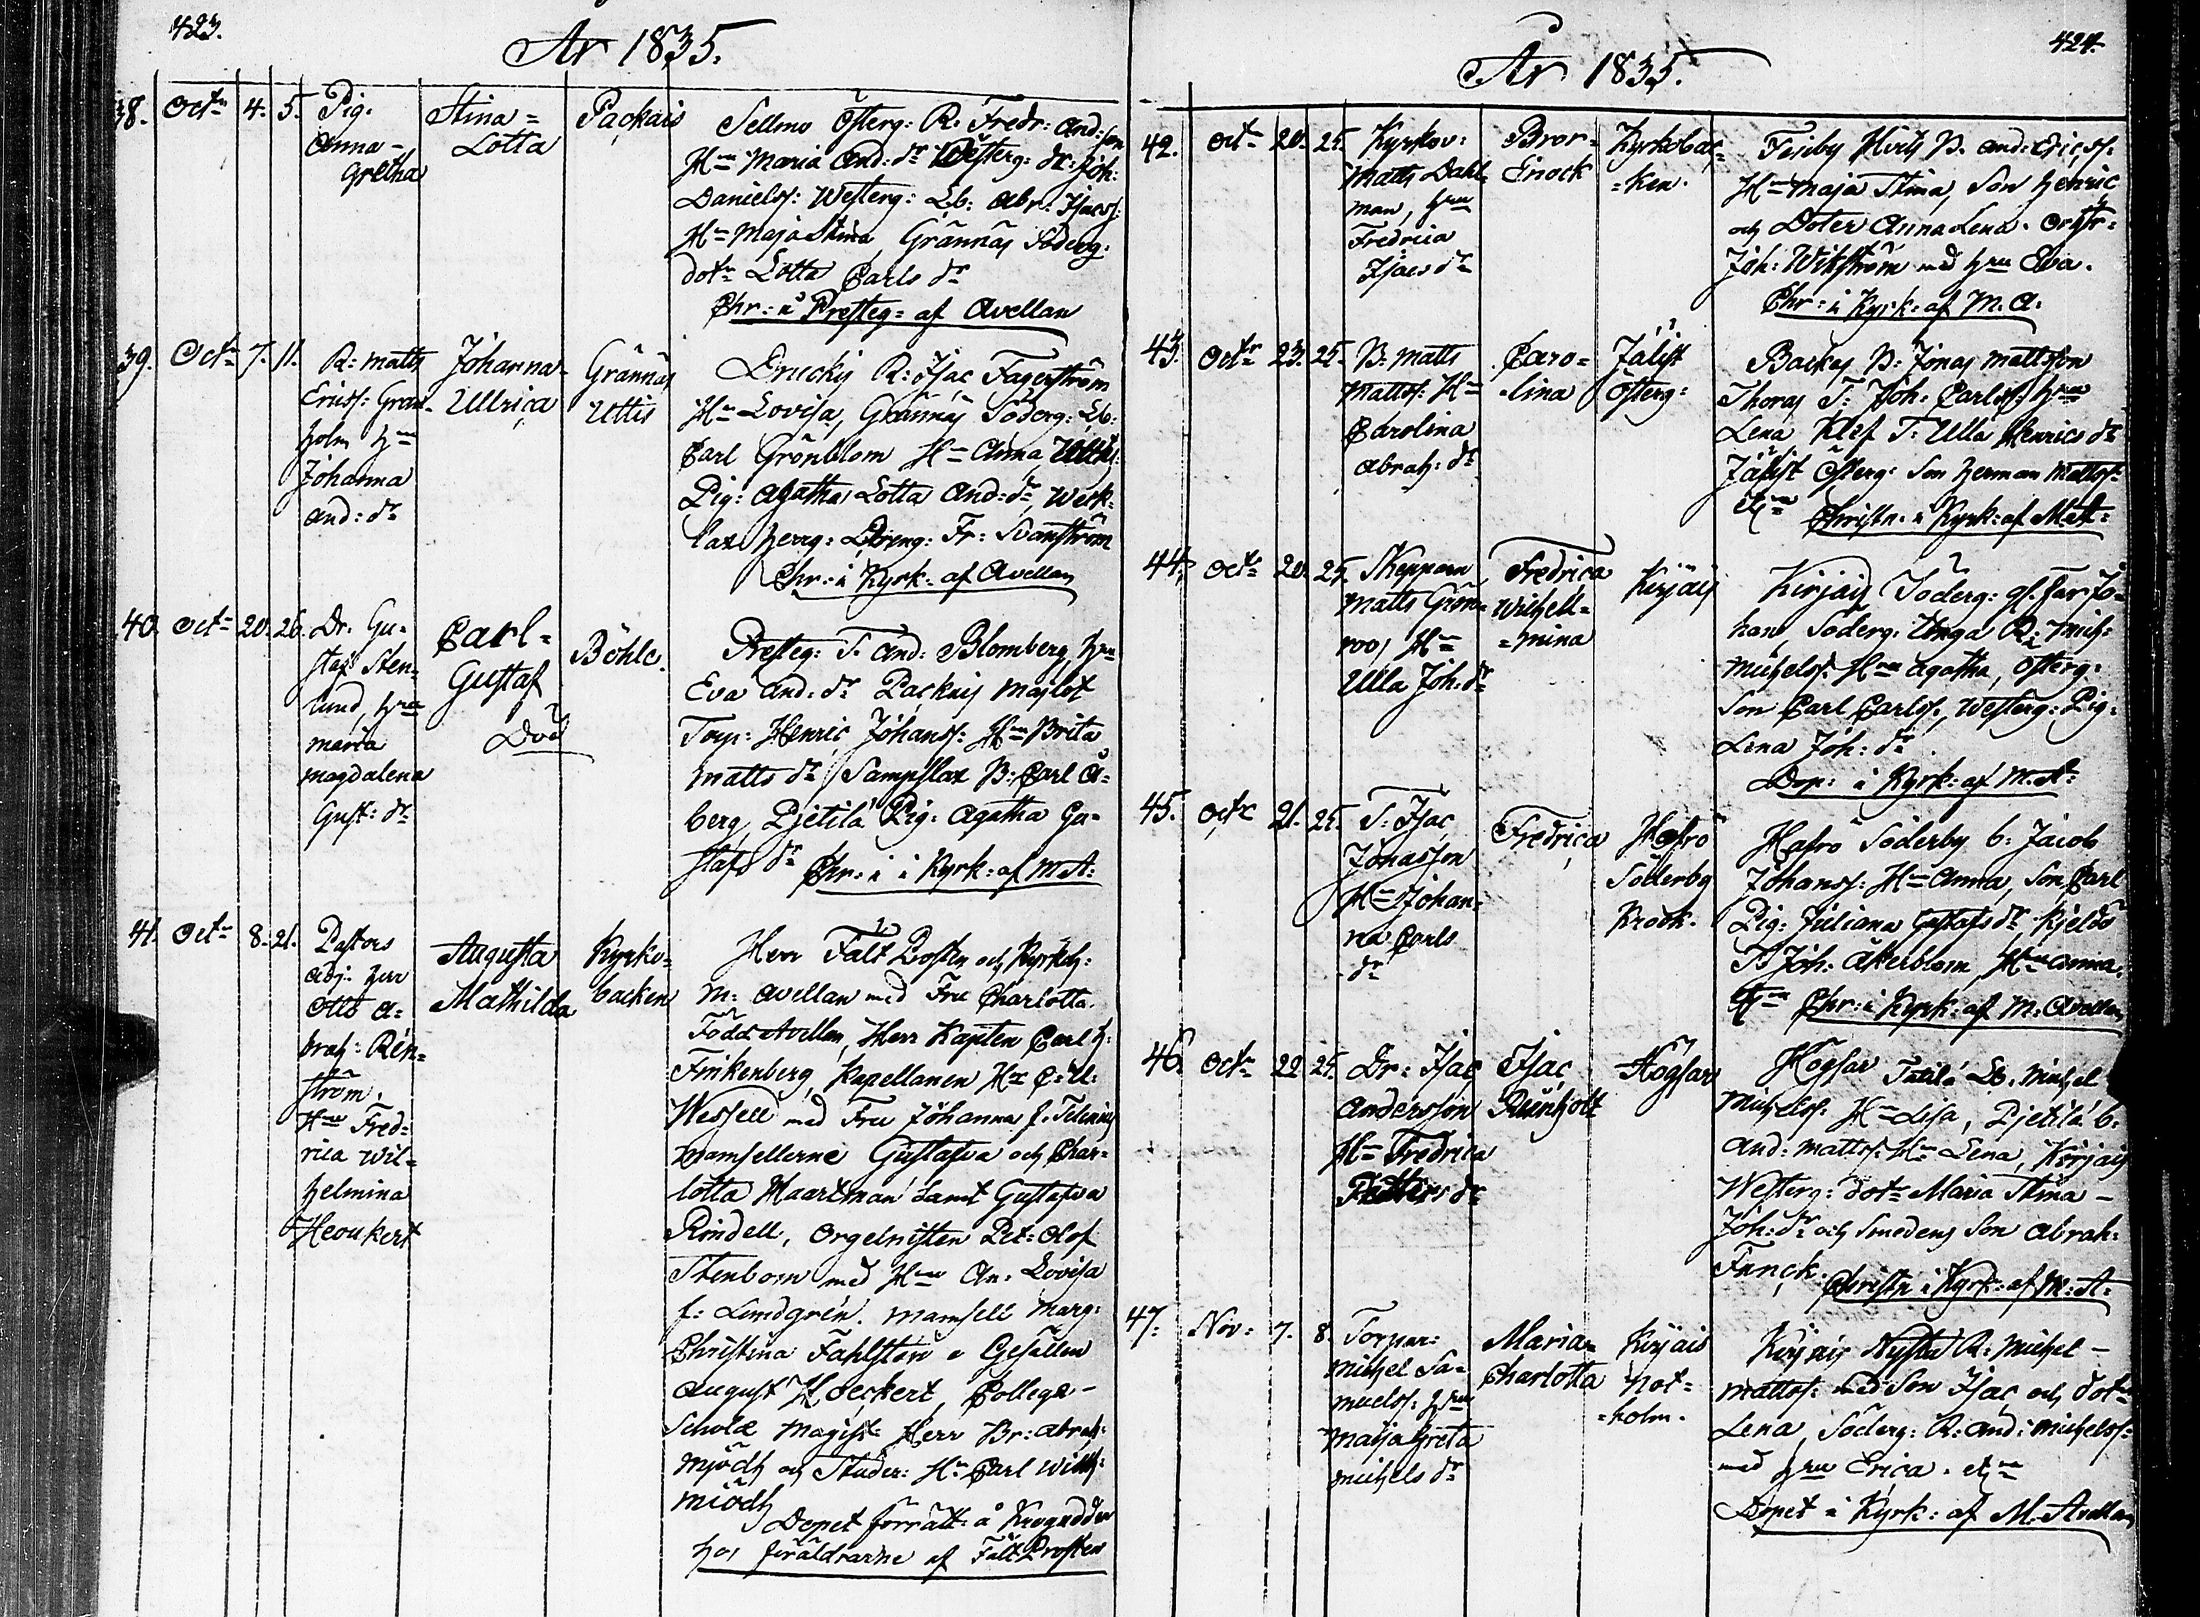 423.
År 1835.
38. Octr 4. 5. Pig. Anna-Gretha
Stina=Lotta
Packais
Sellmo Österg: R: Fredr: And:son
Hu Maria And: dr Westerg: dr: Joh:
Daniels: Westerg: Lb: Abr: Isacs:
Hu Maja Stina, Grännäs Söderg:
dotr Lotta Carls dr
Chr: i Presteg: af Avellan
39. Octr 7. 11. R: Matts
Ericss: Gran-
holm Hu
Johanna
And: dr
Johanna-
Ullrica
Grännäs
Uttis
R: Isac Fagerström
Hu Lovisa, Grännäs Söderg: Lb:
Carl Grönblom Hu Anna, Uttis:
Pig: Agatha Lotta And: dr, Werk-
lax herrg: Dreng: Fr: Svanström
Chr: i Kyrk: af Avellan
40. Octr 20. 26. Dr. Gu-
staf Sten-
lund, hru
Maria
Magdalena
Gust: dr
Carl-
Gustaf
Död
Böhle.
Presteg: T. And: Blomberg, hru
Eva And: dr Packais Majlot
Torp: Henric Johanss: Hu Brita
Matts dr, Sampslax B: Carl Å=
berg, Pjetilä Pig: Agatha Gu-
stafs dr Chr: i i Kyrk: af M A:
41. Octr 8. 21. Pastors
Adj: herr
Otto A-
brah: Ren-
ström.
Hu Fred-
rica Wil-
helmina
Heoukert
Augusta
Mathilda
Kyrko-
backen
Herr Fält Prosten och Kyrkoh:
M: Avellan med Fru Charlotta
Född Avellan, Herr Kapten Carl H:
Finkenberg, Kapellanen Hr C: U:
Wessell med Fru Johanna f: Telenius
Mamsellerne Gustafva och Char-
lotta Haartman samt Gustafva
Rindell, Orgelnisten Pet: Olof
Stenbom med Hu An: Lovisa
f: Lundgren. Mamsell Marg:
Christina Fahlsten o Gesällen
August Hoeckert, Collega-
Scholæ Magist: Herr Br: Abrah:
Mjödh och Studer: Hr Carl Wilh:
Miödh
Dopet förrätt: å Krogudden
hos föräldrarne af Fält Prosten
424
År 1835.
42. Octr 20. 25. Kyrkov:
Matts Dahl-
man, hru
Fredrica
Isacs dr
Bror-
Enock
Kyrkobac-
=ken.
Finby B. And: Ericss:
Hu Maja Stina, Son Henric
och Doter Anna Lena. Orgr:
Joh: Wikström med hru Eva.
Chr: i Kyrk: af M. A.
43. Octr 23. 25. B: Matts
Mattss: Hu
Carolina
Abrah: dr
Caro-
lina
Jälist
Österg:
Backas B: Jonas Mattsson
Thoras T: Joh: Carlss: hru
Lena Klef T: Ulla Henrics dr
Jälist Österg: Son Herman Mattss:
etc Christn: i Kyrk: af M A:
44. Octr 20. 25. Skepparn
Matts Grön-
roos Hu
Ulla Joh: dr
Fredrica
Wilhell-
=mina
Kirjais
Kirjais Söderg: gl. far Jo-
han, Söderg: Unga R: Mich:
Michelss: Hu Agatha, Österg:
Son Carl Carlss:, Westerg: Pig:
Lena Joh: dr
Dop: i Kyrk: af M. A:
45. Octr 21. 25. T: Isac
Jonasson
Hu Johan-
na Carls
dr
Fredrica
Hafrö
Söderby
Krook.
Hafrö Söderby b: Jacob
Johanss: Hu Anna, Son Carl
Pig: Juliana Gustafs dr, Kjeldö
T: Joh: Åkerblom, Hu Anna.
etc Chr: i Kyrk: af M. Avellan
46. Octr 22. 25. Dr: Isac
Andersson
Hu Fredrica
Petters dr
Isac
Reinholt
Högsar
Högsar Tätilä Lb. Michel
Michelss: Hu Lisa, Pjetilä b.
And: Mattss: Hu Lena, Kirjais
Westerg: dotr Maria Stina-
Joh: dr och Smedens Son Abrah:
Funck. Christn i Kyrk: af M: A:
47. Nov: 7. 8. Torpar:
Michel Sa-
muelss: hru
Maja Greta
Michels dr
Maria-
Charlotta
Kirjais
Not-
=holm.
Kirjais Nysta R: Michel-
Mattss: med Son Isac och dotr
Lena, Söderg: R: And: Michelss:
med hru Erica. etc
Dopet i Kyrk: af M. Avellan